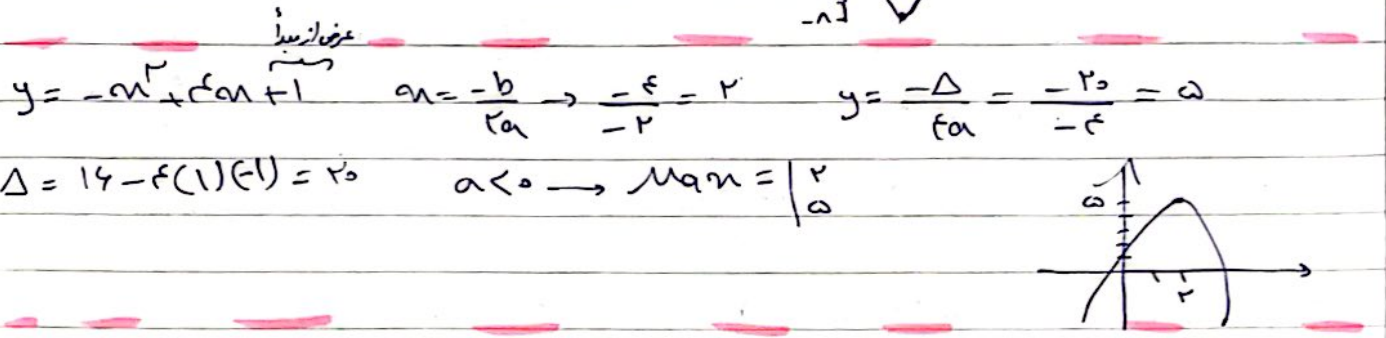 -۸]
عرض از مبدأ
y = -x^۲ + ۴x + ۱    x = -b/۲a → -۴/-۲ = ۲    y = -Δ/۴a = -۲۰/-۴ = ۵
Δ = ۱۶ - ۴(۱)(-۱) = ۲۰    a<۰ → Max = |۲ ۵
۵
۲